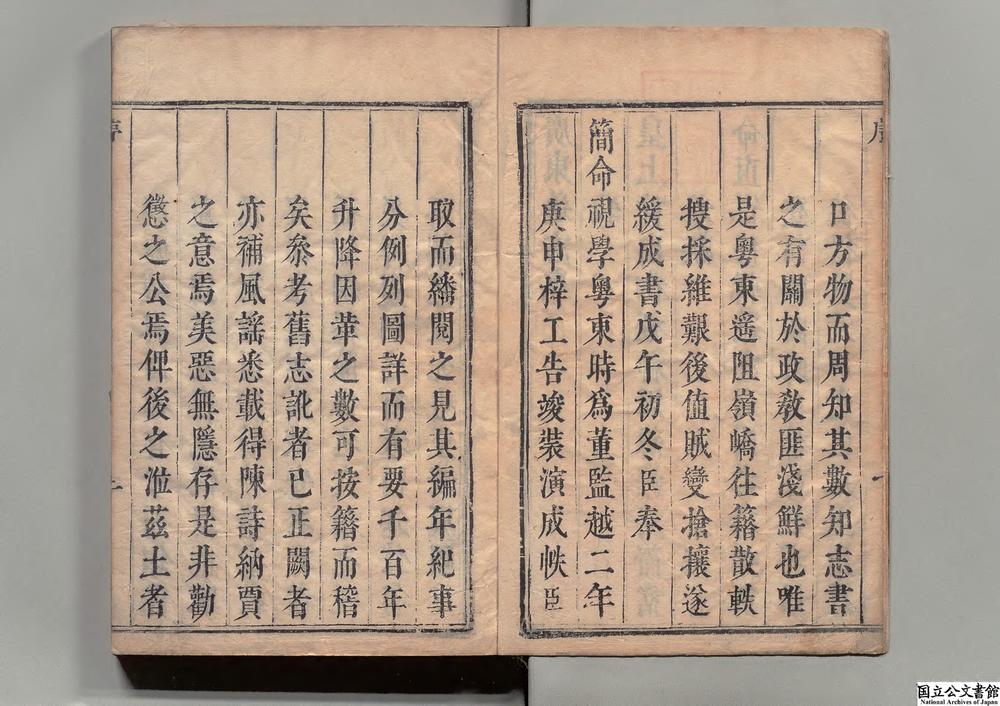 序
口方物而周知其數知志書
之有關於政教匪淺鮮也唯
是粵東遥阻嶺嶠往籍散軼
搜採維艱後值賊變搶攘遂
緩成書戊午初冬臣奉
簡命視學粵東時為董監越二年
庚申梓工告竣裝演成帙臣
取而繙閱之見其編年紀事
分例列圖詳而有要千百年
升降因革之數可按籍而稽
矣叅考舊志訛者已正闕者
亦補風謠悉載得陳詩納賈
之意焉美惡無隱存是非勸
懲之公焉俾後之涖茲土者
国立公文書館
National Archives of Japan